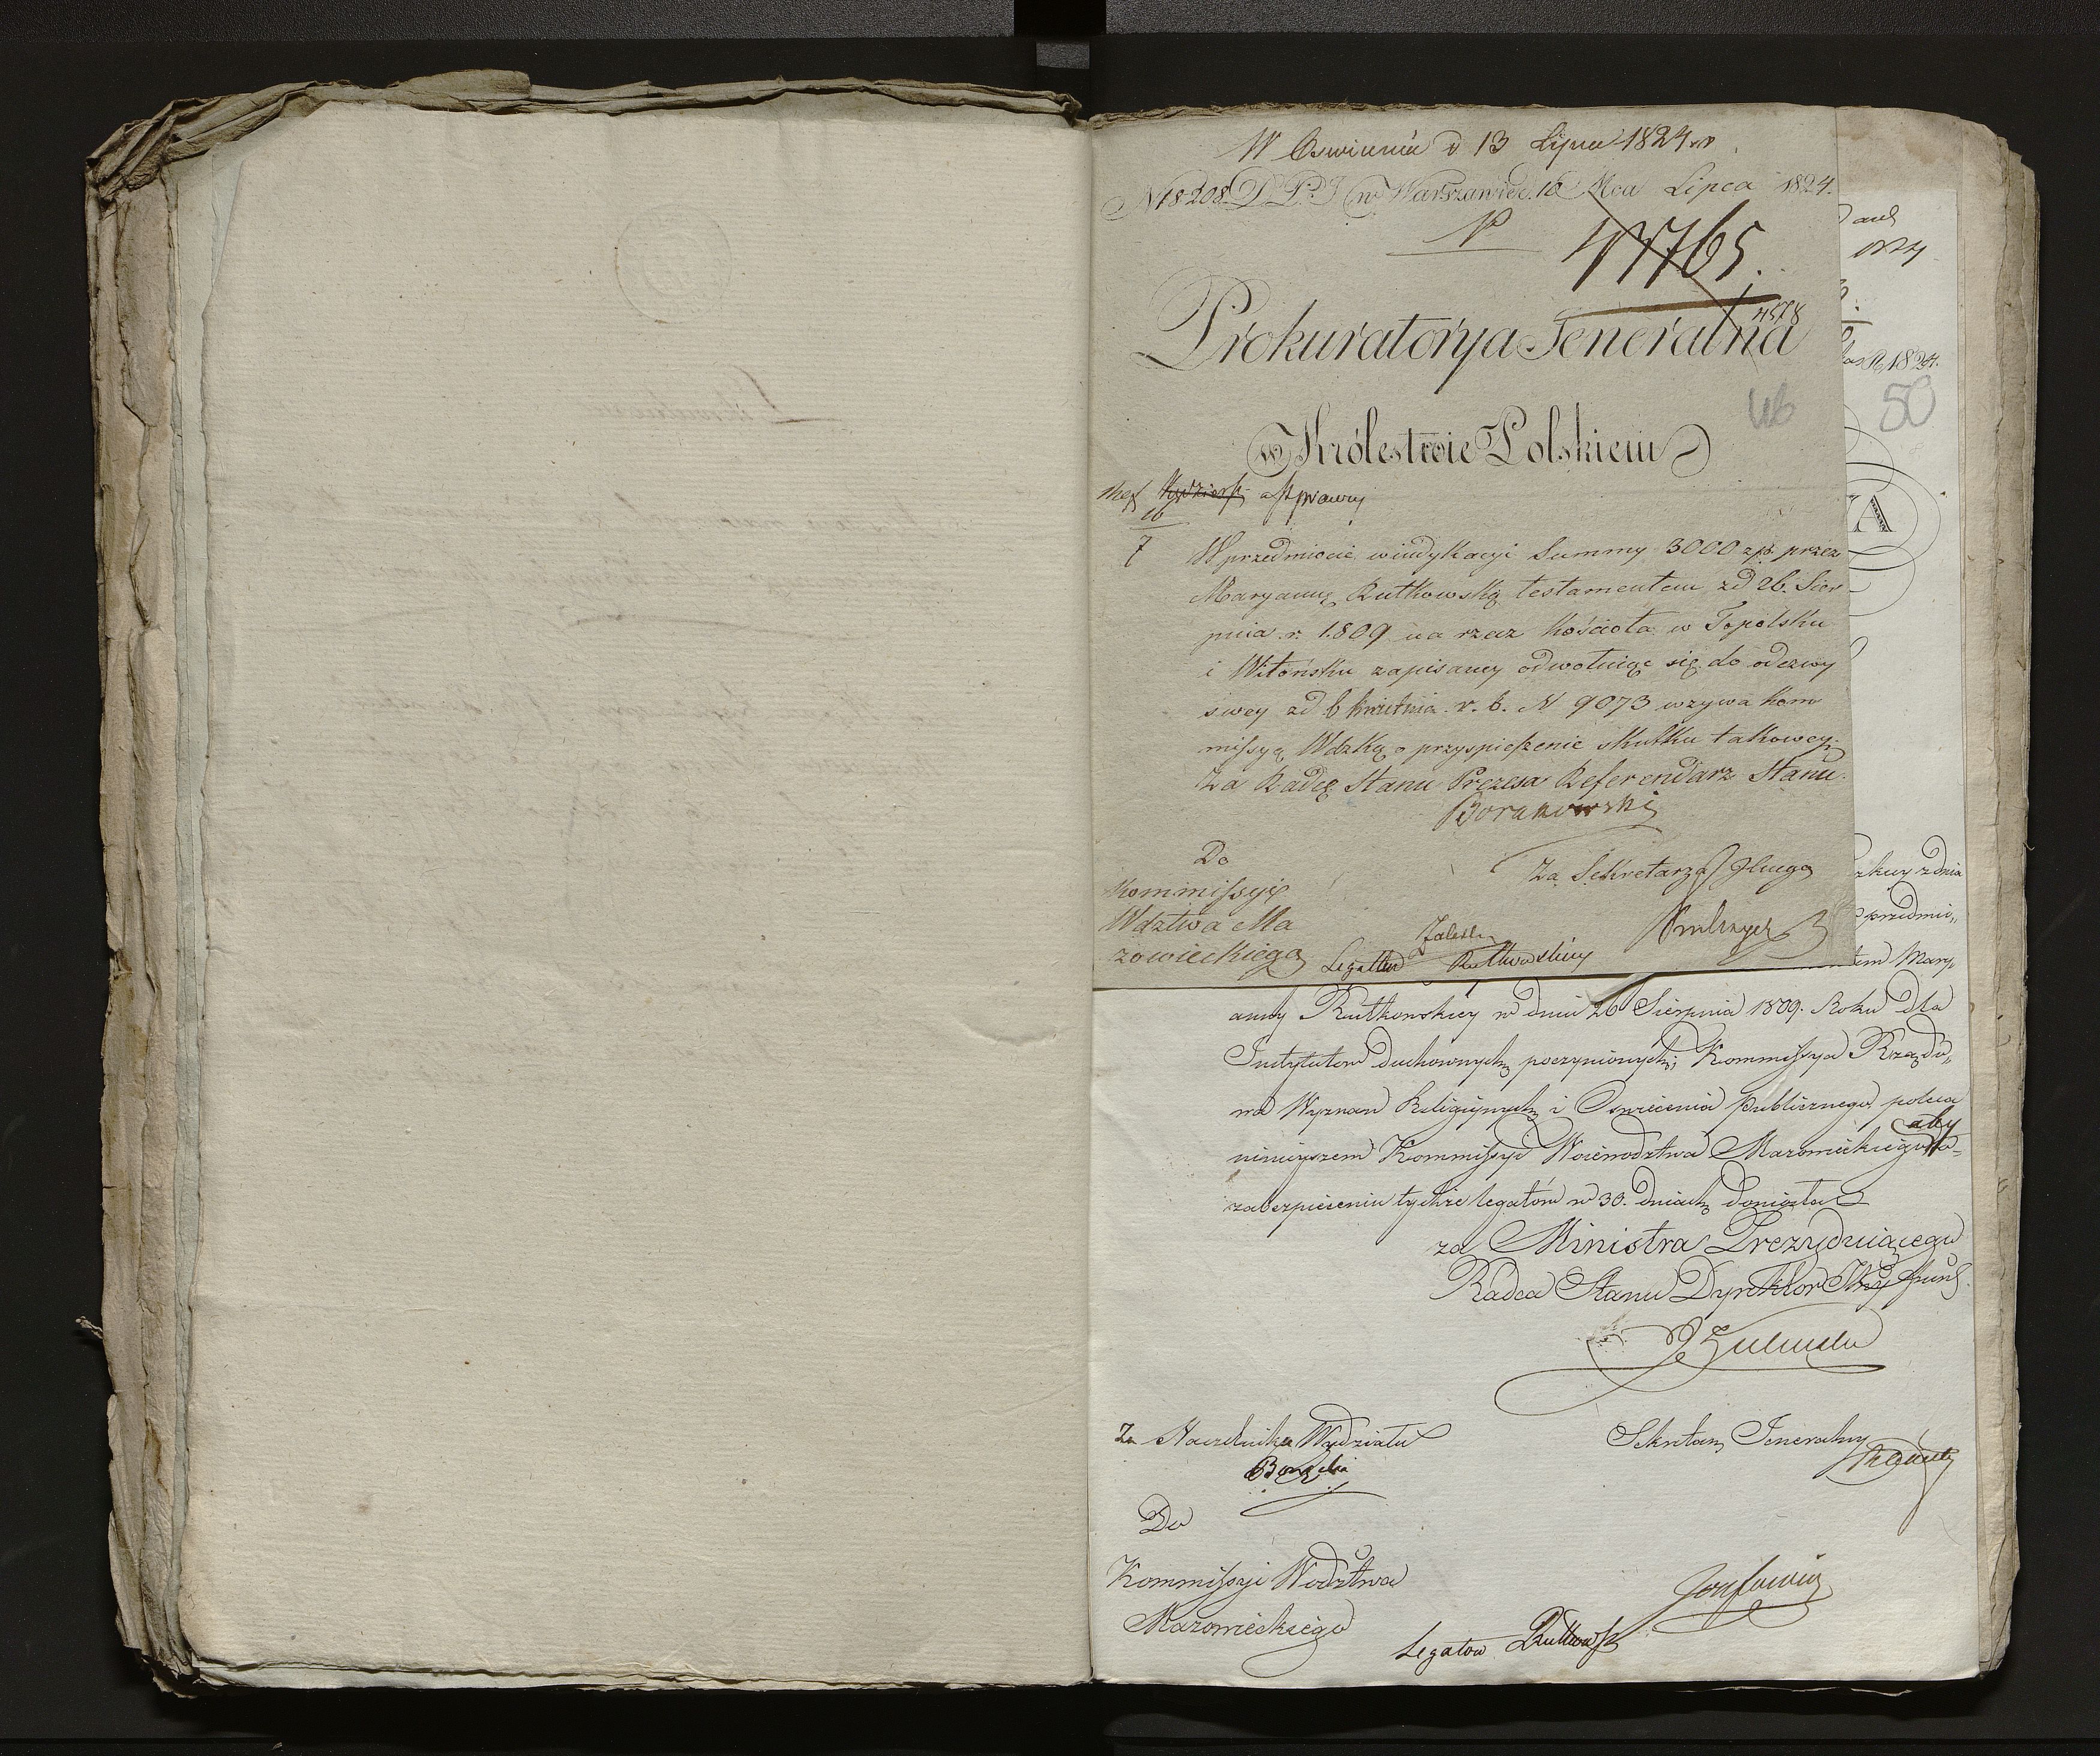 W Oswieceniu d 13 Lipca 1824 r
N 18208. D. P. J. w Warszawie d. 16 Mca Lipca 1824.
47765.
4578
Prokuratorya Jeneralna
w Królestwie Polskiem
46
akta sprawy
16
7
W przedmiocie windykacyi Summy 3000 złp. przez
Maryannę Rutkowską testamentem z d 26. Sier-
pnia r. 1.809 na rzecz kościoła w Topolsku
i Witońsku zapisaney odwołuiąc się do odezwy
swey z d 6 kwietnia r. b. N 9073 wzywa kom
missyą Wdzką o przyspieszenie skutku takowey.
Za Radcę Stanu Prezesa Referendarz Stanu
Boranowski
Do
Kommissyi
Wdztwa Ma
zowieckiego
Za Sekretarza
Legatów Rutkowskiey
and
1824.
50
ZA
z dnia
przedmio„
tem Mary„
anny Rutkowskiey w dniu 26 Sierpnia 1809. Roku dla
Instytutow duchownych poczynionych, Kommissya Rządo„
wa Wyznań Religiynych i Oswiecenia Publicznego poleca
ninieyszem Kommissyi Woiewodztwa Mazowieckiego aby o
zabezpieczeniu tychże legatów w 30. dniach doniosła
za Ministra Prezyduiącego
Radca Stanu Dyrektor Jlny Fund.
Za Naczelnika Wydziału
Sekretarz Jeneralny
Do
Kommissyi Wodztwa
Mazowieckiego
Legatow Rutkowsk